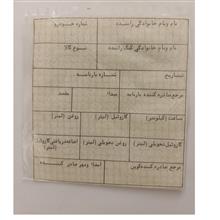 نام ونام خانوادگی راننده    شماره خودرو
نام ونام خانوادگی کمک راننده    نوع کالا
تاریخ    شماره بارنامه
مرجع صادره کننده بارنامه    مبدا    مقصد
ساعت (کیلومتر)    گازوئیل (لیتر)    روغن (لیتر)
گازوئیل تحویلی (لیتر)    روغن تحویلی (لیتر)    اضافه دریافتی گازوئیل (لیتر)
مرجع صادره کننده کوپن    امضا ومهر صادر کننده